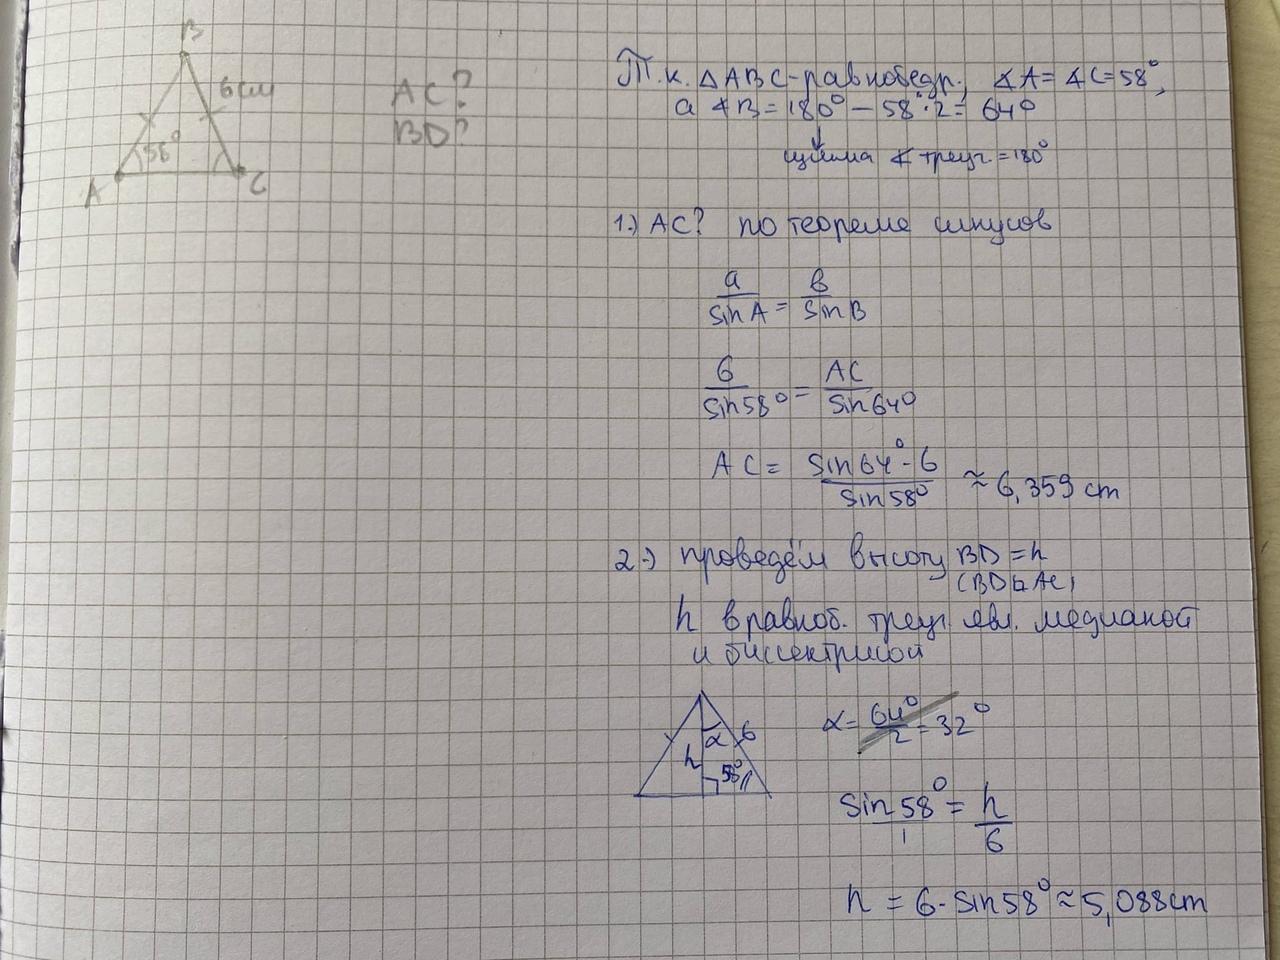 B
6 см
58°
A
C
AC?
BD?
Т.к. △ABC-равнобедр., ∡A = ∡C = 58°,
а ∡B = 180° − 58°·2 = 64°
↓
сумма ∡ треуг. = 180°
1.) AC? по теореме синусов
a/sinA = b/sinB
6/sin58° = AC/sin64°
AC = sin64°·6/sin58° ≈ 6,359 cm
2.) проведём высоту BD = h
(BD⊥AC)
h в равноб. треуг. явл. медианой
и биссектрисой
α 6
h 58°
α = 64°/2 = 32°
sin58°/1 = h/6
h = 6·sin58° ≈ 5,088cm